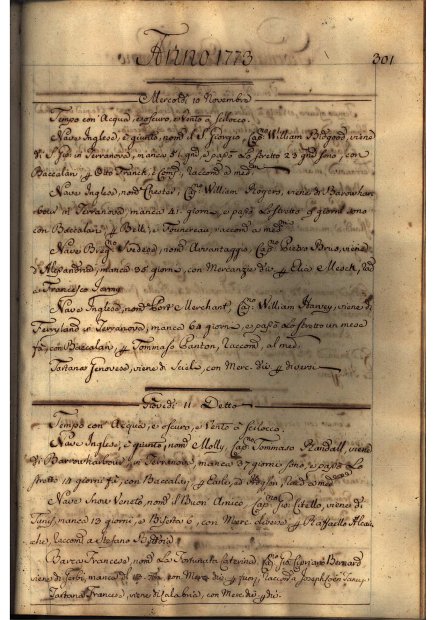 Anno 1773
301
Mercoledi 10 Novembre
Tempo con Acqua, e oscuro, e Vento a Scilocco.
Nave Inglese, è giunto, nom: il S. Giorgio, Cap:no William Bidgood, viene
di S. Gio: in Terranova, manca 31 gni, e passò lo stretto 23 gni sono, con
Baccalari, p Otto Franck, e Comp:, Raccom: a med:
Nave Inglese, nom: Chester, Cap:no William Rogers, viene di Barowhar
bour in Terranova, manca 41 giorni, e passò lo stretto giorni sono
con Baccalari, p Bell, e Fournerau, raccom: a med:
Nave Svedese, nom: Avvantaggio, Cap:no Pietro Brus, viene
d'Alexandria, manca 36 giorni, con Mercanzie die: p Elia Meseck,
a Francesco Jermy
Nave Inglese, nom: Port Merchant, Cap:no William Harvey, viene di
Ferryland in Terranova, manca 64 giorni, e passò lo stretto un mese
fà, con Baccalari, p Tommaso Panton, Raccom: al med:
Tartana Genovese, viene di Scicli, con Merc: die: p diversi
Giovedi 11 Detto
Tempo con Acqua, e oscuro, e Vento a Scilocco.
Nave Inglese, è giunto, nom: Molly, Cap:no Tommaso Randall, viene
di Barrowharbour, in Terranova, manca 37 giorni sono, e passò lo
stretto 14 giorni fà, con Baccalari, p Earle, e Hodgson,
Nave Snow Veneto, nom: il Buon Amico, Cap:no Gio: Citello, viene di
Tunis, manca 13 giorni, e Biserta 6, con Merc: diverse p Raffaello
che, raccom: a Stefano
Barca Francese, nom: La Fortunata Caterina, Cap:no Gio: Cipriano Bernard
viene di Gerbi, manca con Merc: die: p
Tartana Francese, viene di Calabria, con Merc: die: p di: